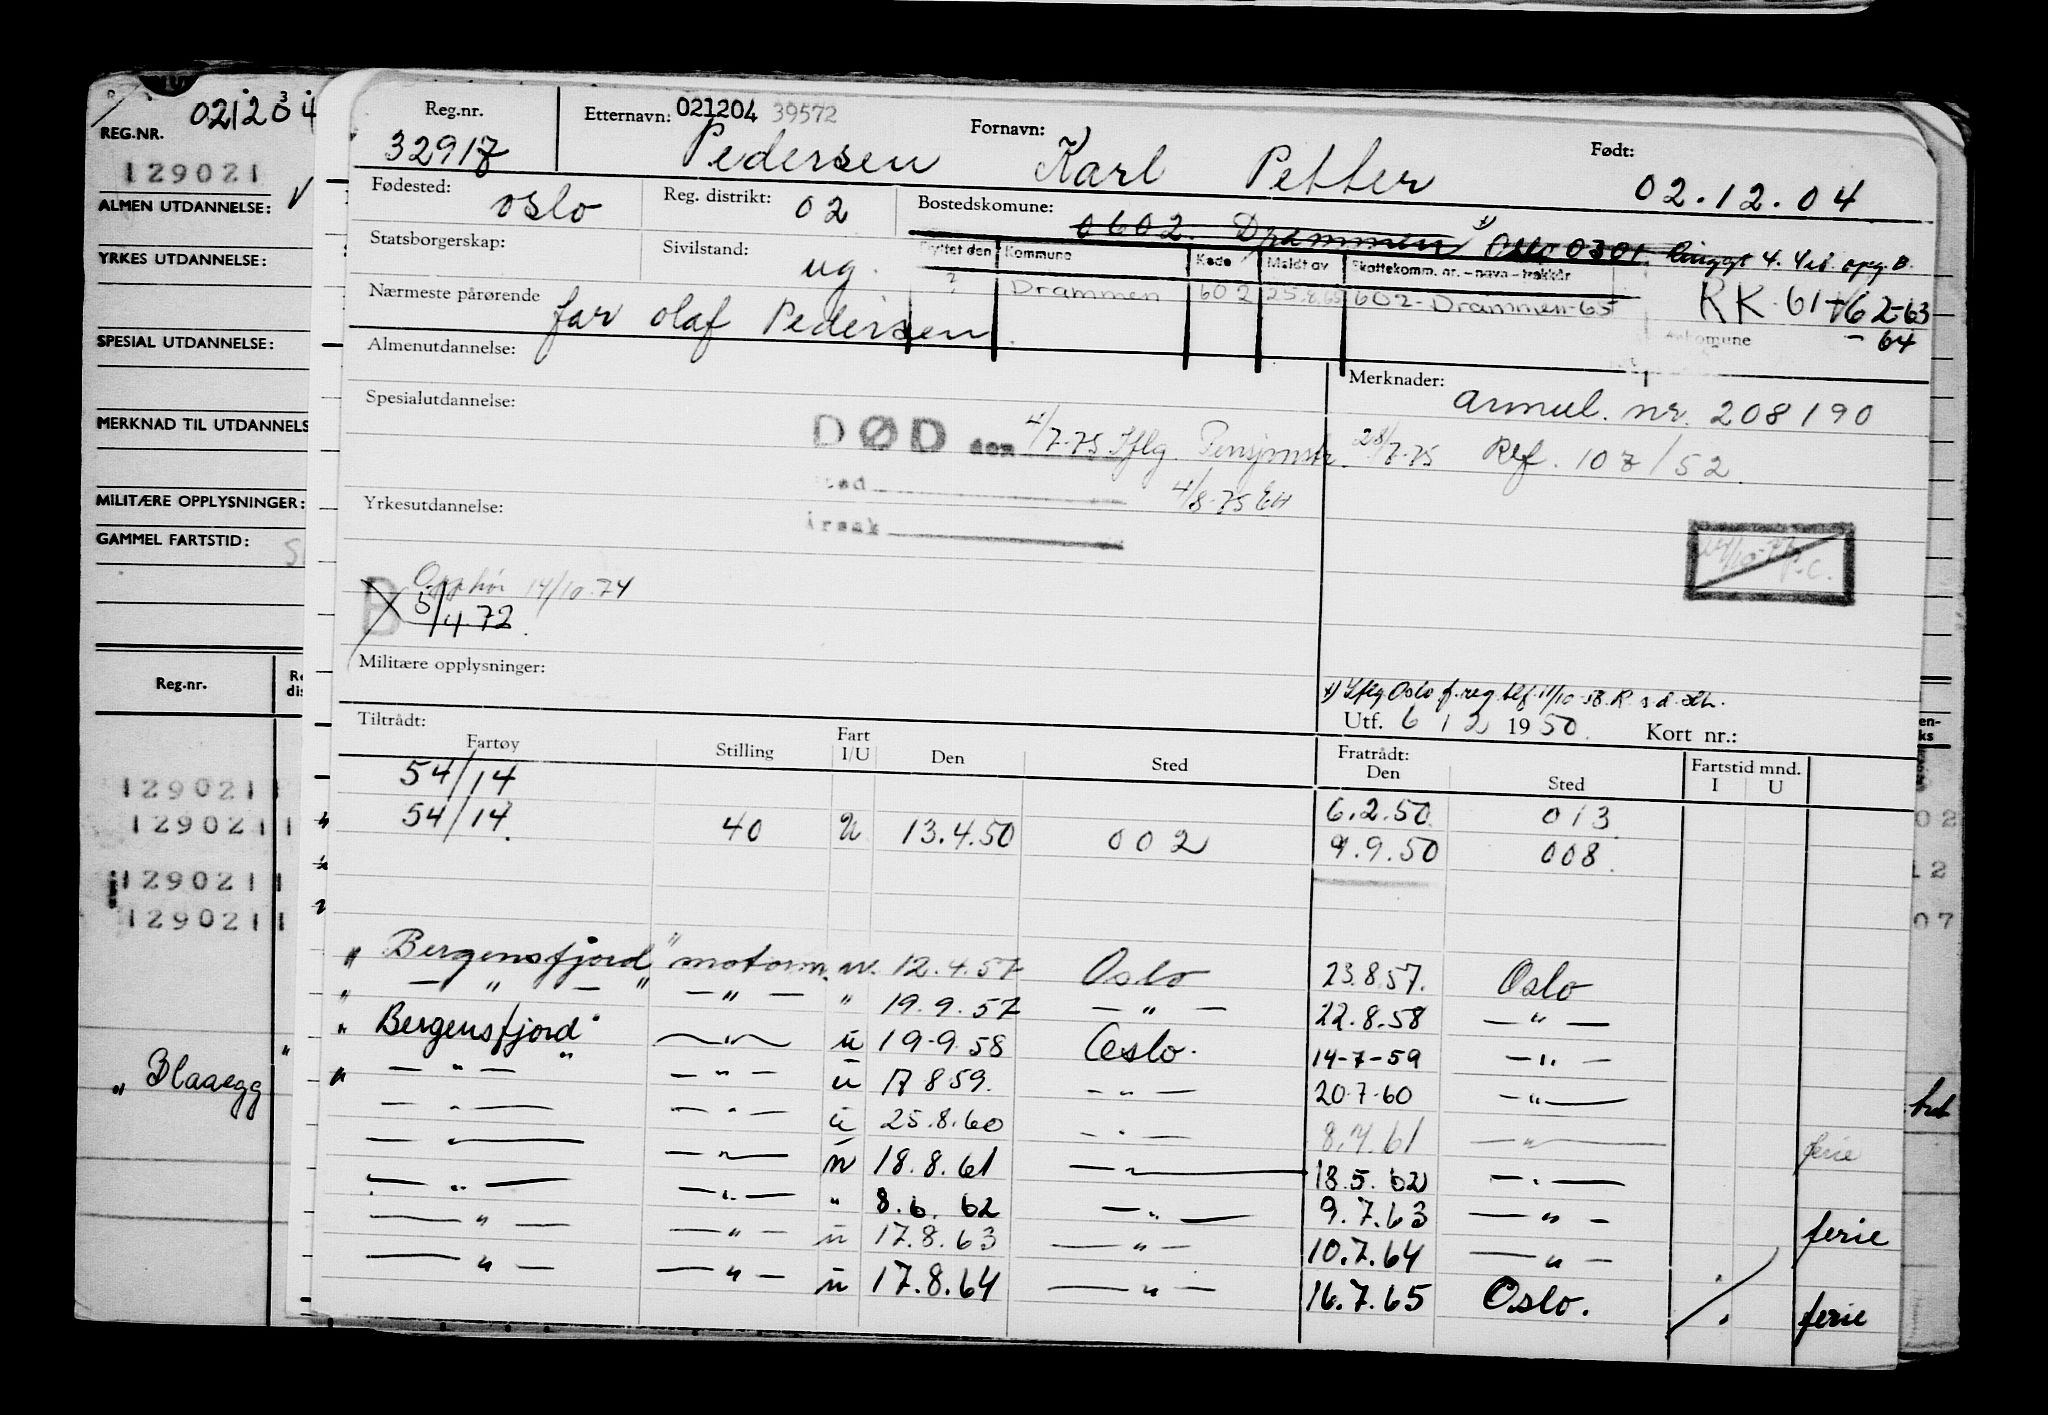 021204
REG.NR.
129021
ALMEN UTDANNELSE:
YRKES UTDANNELSE:
SPESIAL UTDANNELSE:
MERKNAD TIL UTDANNELS
MILITÆRE OPPLYSNINGER:
GAMMEL FARTSTID:
Reg.nr.
1290211
1290211
1290211
1290211
" Blaaegg "
Reg.nr. Etternavn: 021204 39572 Fornavn: Født:
32917 Pedersen Karl Petter 02.12.04
Fødested: Oslo Reg. distrikt: 02 Bostedskommune: 0602 Drammen Oslo 0301
Statsborgerskap: Sivilstand: ug.
Flyttet den Kommune Kode Meldt av Skattekomm. nr.-navn-trekkår
? Drammen 602 25.8.65 602-Drammen-65
RK-61+62-63
-64
Nærmeste pårørende far Olaf Pedersen
Almenutdannelse:
Merknader: annul. nr. 208190
Spesialutdannelse:
DØD den 4/7-75 Iflg. Pensjonstr. 28/7-75 Ref. 107/52
Sted 4/8-75 EH
Yrkesutdannelse:
Årsak
Opphør 14/10-74
B 5/4.72
Militære opplysninger:
x) Iflg Oslo f.reg.
Utf. 6 / 2 1950. Kort nr.:
Tiltrådt: Fratrådt: Fartstid mnd.
Fartøy Stilling Fart I/U Den Sted Den Sted I U
54/14 6.2.50 013
54/14 40 U 13.4.50 002 9.9.50 008
" Bergensfjord" motorm. u. 12.4.57 Oslo 23.8.57. Oslo
" — " — " — " — " 19.9.57 — " — 22.8.58 — " —
" Bergensfjord" — " — u 19-9.58 Oslo. 14-7-59 — " —
" — " — " — " — u 17 8 59. — " — 20.7-60 — " —
— " — — " — u 25.8.60 — " — 8.7.61 — " — ferie
— " — — " — u 18.8.61 — " — 18.5.62 — " —
— " — — " — " 8.6.62 — " — 9.7.63 — " — ferie
— " — — " — u 17.8.63 — " — 10.7.64 — " —
— " — — " — u 17.8.64 — " — 16.7.65 Oslo. ferie